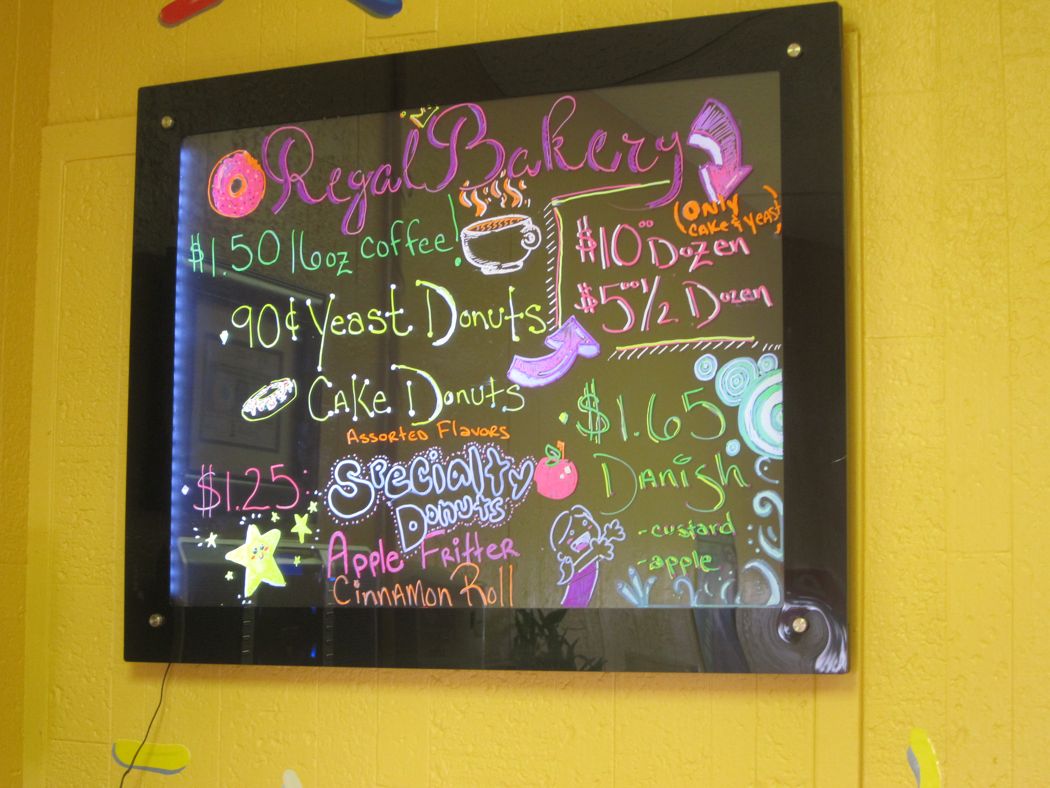 Regal Bakery
$1.50 16oz coffee!
90¢ Yeast Donuts
Cake Donuts
Assorted Flavors
(Only
cake & yeast)
$10⁰⁰ Dozen
$5⁰⁰ 1/2 Dozen
$1.25: Specialty
Donuts
Apple Fritter
Cinnamon Roll
$1.65
Danish
-custard
-apple